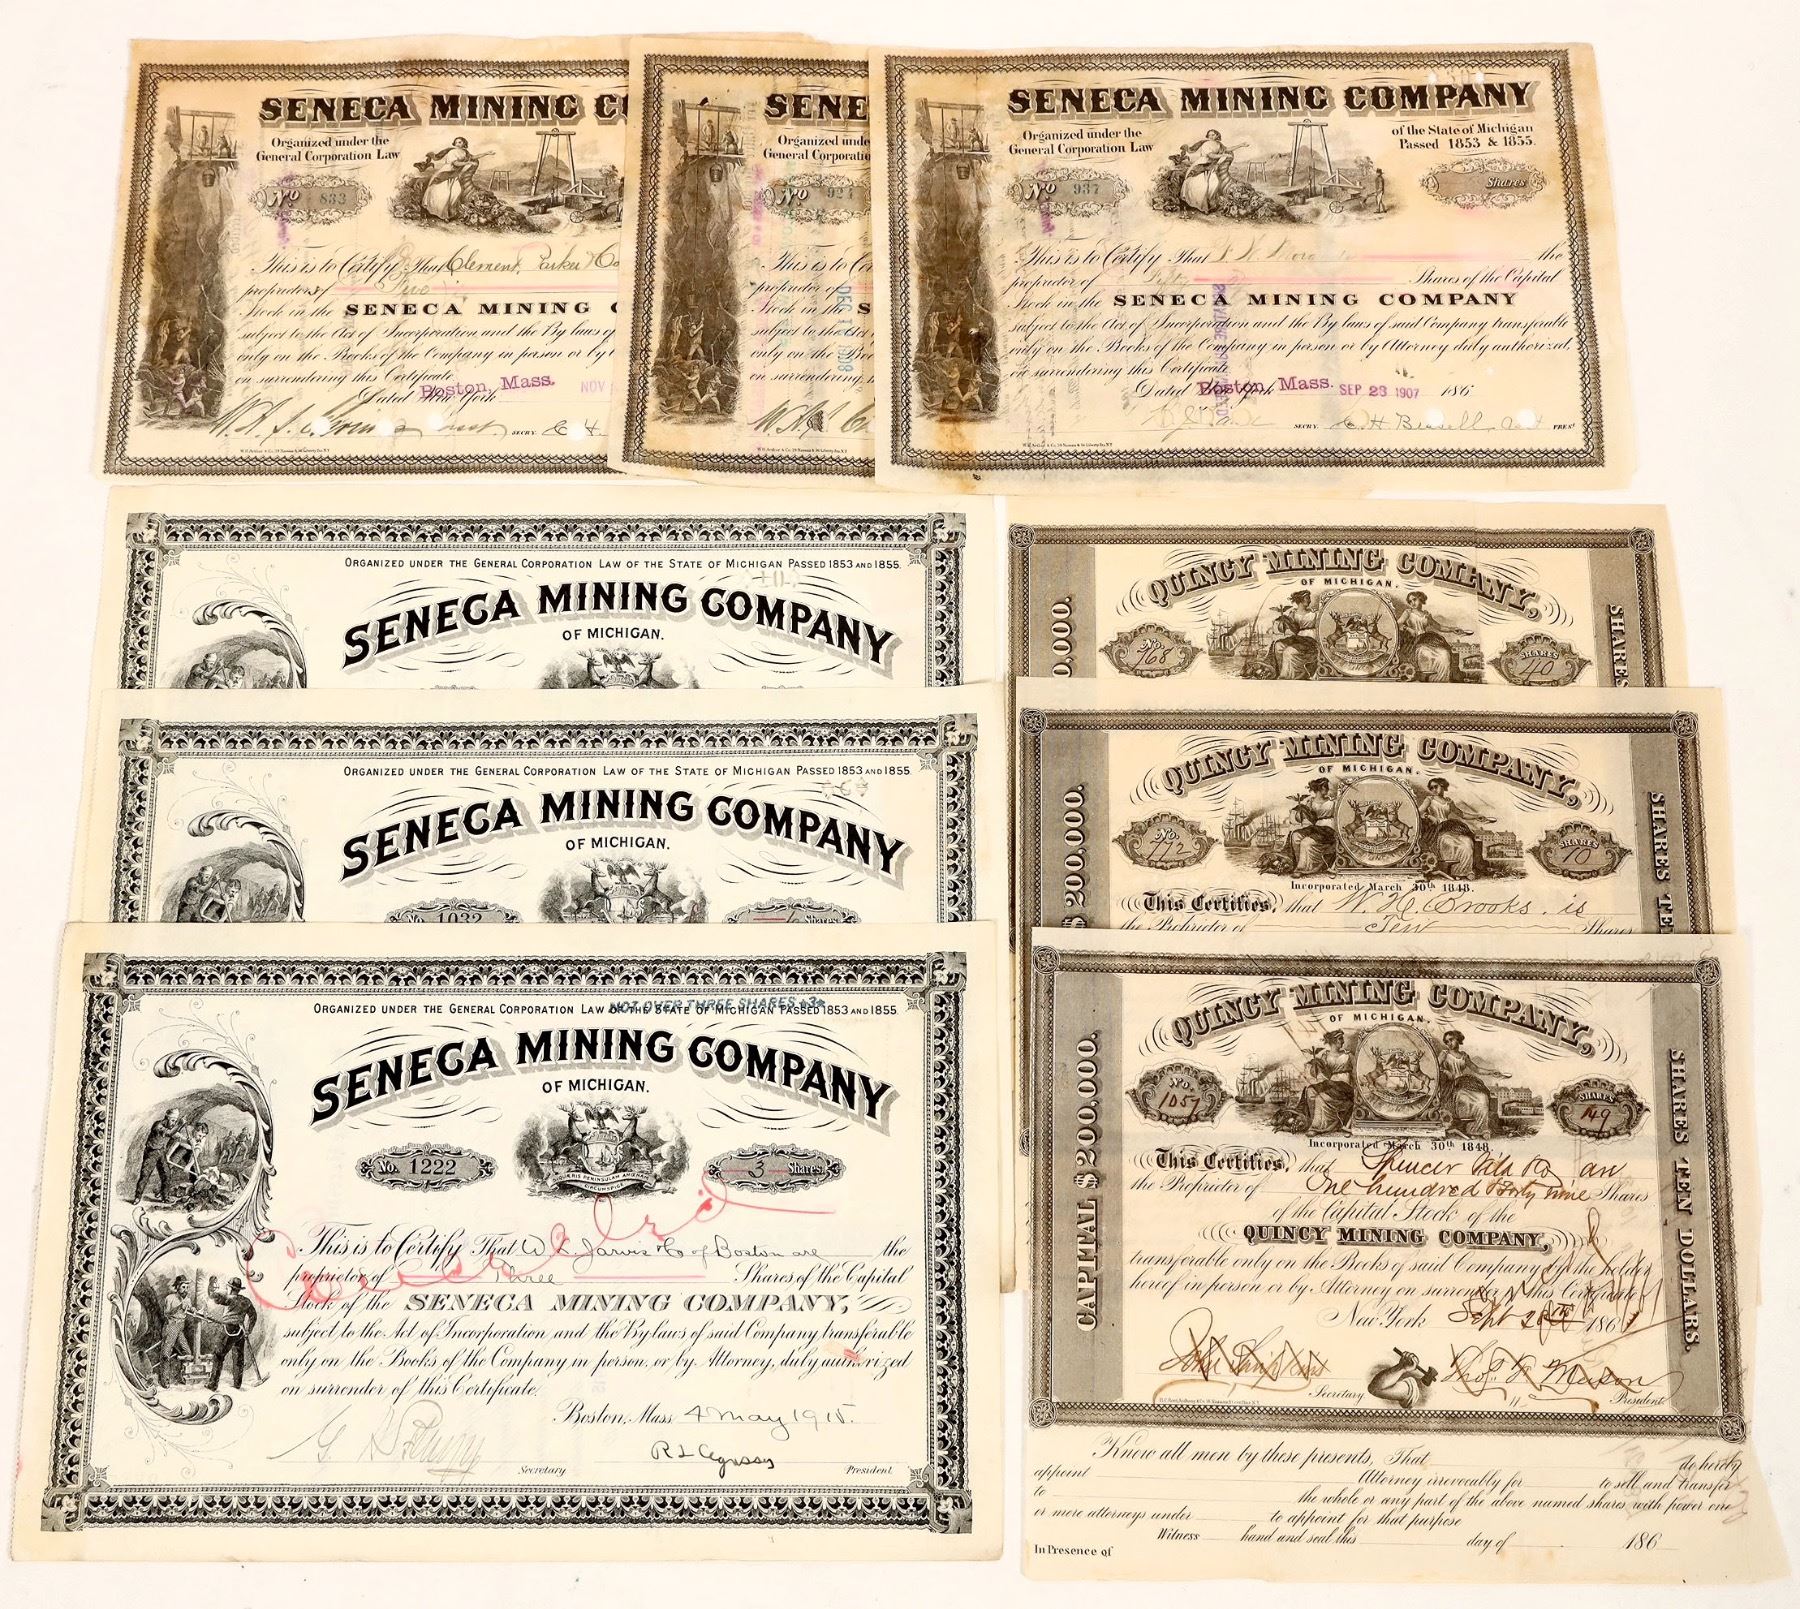 SENECA MINING CO
Organized under the
General Corporation Law
No 833
This is to Certify That Clement, Parker & Co
proprietors of Two
Stock in the SENECA MINING C
subject to the Act of Incorporation and the By laws of
only on the Books of the Company in person or by
on surrendering this Certificate
Dated New York Boston, Mass. NOV
SECRY.
W.H. Arthur & Co. 39 Nassau & 56 Liberty Sts. N.Y.
SENE
Organized unde
General Corporatio
No
This is to Cer
proprietor of
Stock in the S
subject to the Act
only on the Boo
on surrendering
DEC 1908
SENECA MINING COMPANY
Organized under the
General Corporation Law
of the State of Michigan
Passed 1853 & 1855.
No 937
Shares
This is to Certify That the
proprietor of Fifty Shares of the Capital
Stock in the SENECA MINING COMPANY
subject to the Act of Incorporation and the By laws of said Company transferable
only on the Books of the Company in person or by Attorney duly authorized,
on surrendering this Certificate
Dated New York Boston, Mass. SEP 23 1907 186
SECRY. PREST
W.H. Arthur & Co. 39 Nassau & 56 Liberty Sts. N.Y.
ORGANIZED UNDER THE GENERAL CORPORATION LAW OF THE STATE OF MICHIGAN PASSED 1853 AND 1855.
SENECA MINING COMPANY
OF MICHIGAN.
ORGANIZED UNDER THE GENERAL CORPORATION LAW OF THE STATE OF MICHIGAN PASSED 1853 AND 1855.
SENECA MINING COMPANY
OF MICHIGAN.
No. 1032
Shares
NOT OVER THREE SHARES *3*
ORGANIZED UNDER THE GENERAL CORPORATION LAW OF THE STATE OF MICHIGAN PASSED 1853 AND 1855.
SENECA MINING COMPANY
OF MICHIGAN.
No. 1222
3 Shares.
Cancelled
This is to Certify That W. L. Jarvis & Co of Boston are the
proprietor of Three Shares of the Capital
Stock of the SENECA MINING COMPANY,
subject to the Act of Incorporation and the By-laws of said Company transferable
only on the Books of the Company in person, or by Attorney, duly authorized
on surrender of this Certificate.
Boston, Mass 4 May 1915.
Secretary President
QUINCY MINING COMPANY,
OF MICHIGAN.
No. 768
SHARES 40
0,000.
SHARES
QUINCY MINING COMPANY,
OF MICHIGAN.
No. 772
SHARES 10
Incorporated March 30th 1848.
This Certifies, that W. H. Brooks. is
the Proprietor of Ten Shares
$200,000.
SHARES TE
QUINCY MINING COMPANY,
OF MICHIGAN.
No. 1057
SHARES 149
Incorporated March 30th 1848
This Certifies, that Spencer Vila & Co are
the Proprietor of One hundred forty nine Shares
of the Capital Stock of the
QUINCY MINING COMPANY,
transferable only on the Books of said Company by the holder
hereof in person or by Attorney on surrender of this Certificate
New York Sept 186
Secretary President
CAPITAL $200,000.
SHARES TEN DOLLARS.
Know all men by these presents, That do hereby
appoint Attorney irrevocably for to sell and transfer
to the whole or any part of the above named shares with power one
or more attorneys under to appoint for that purpose
Witness hand and seal this day of 186
In Presence of